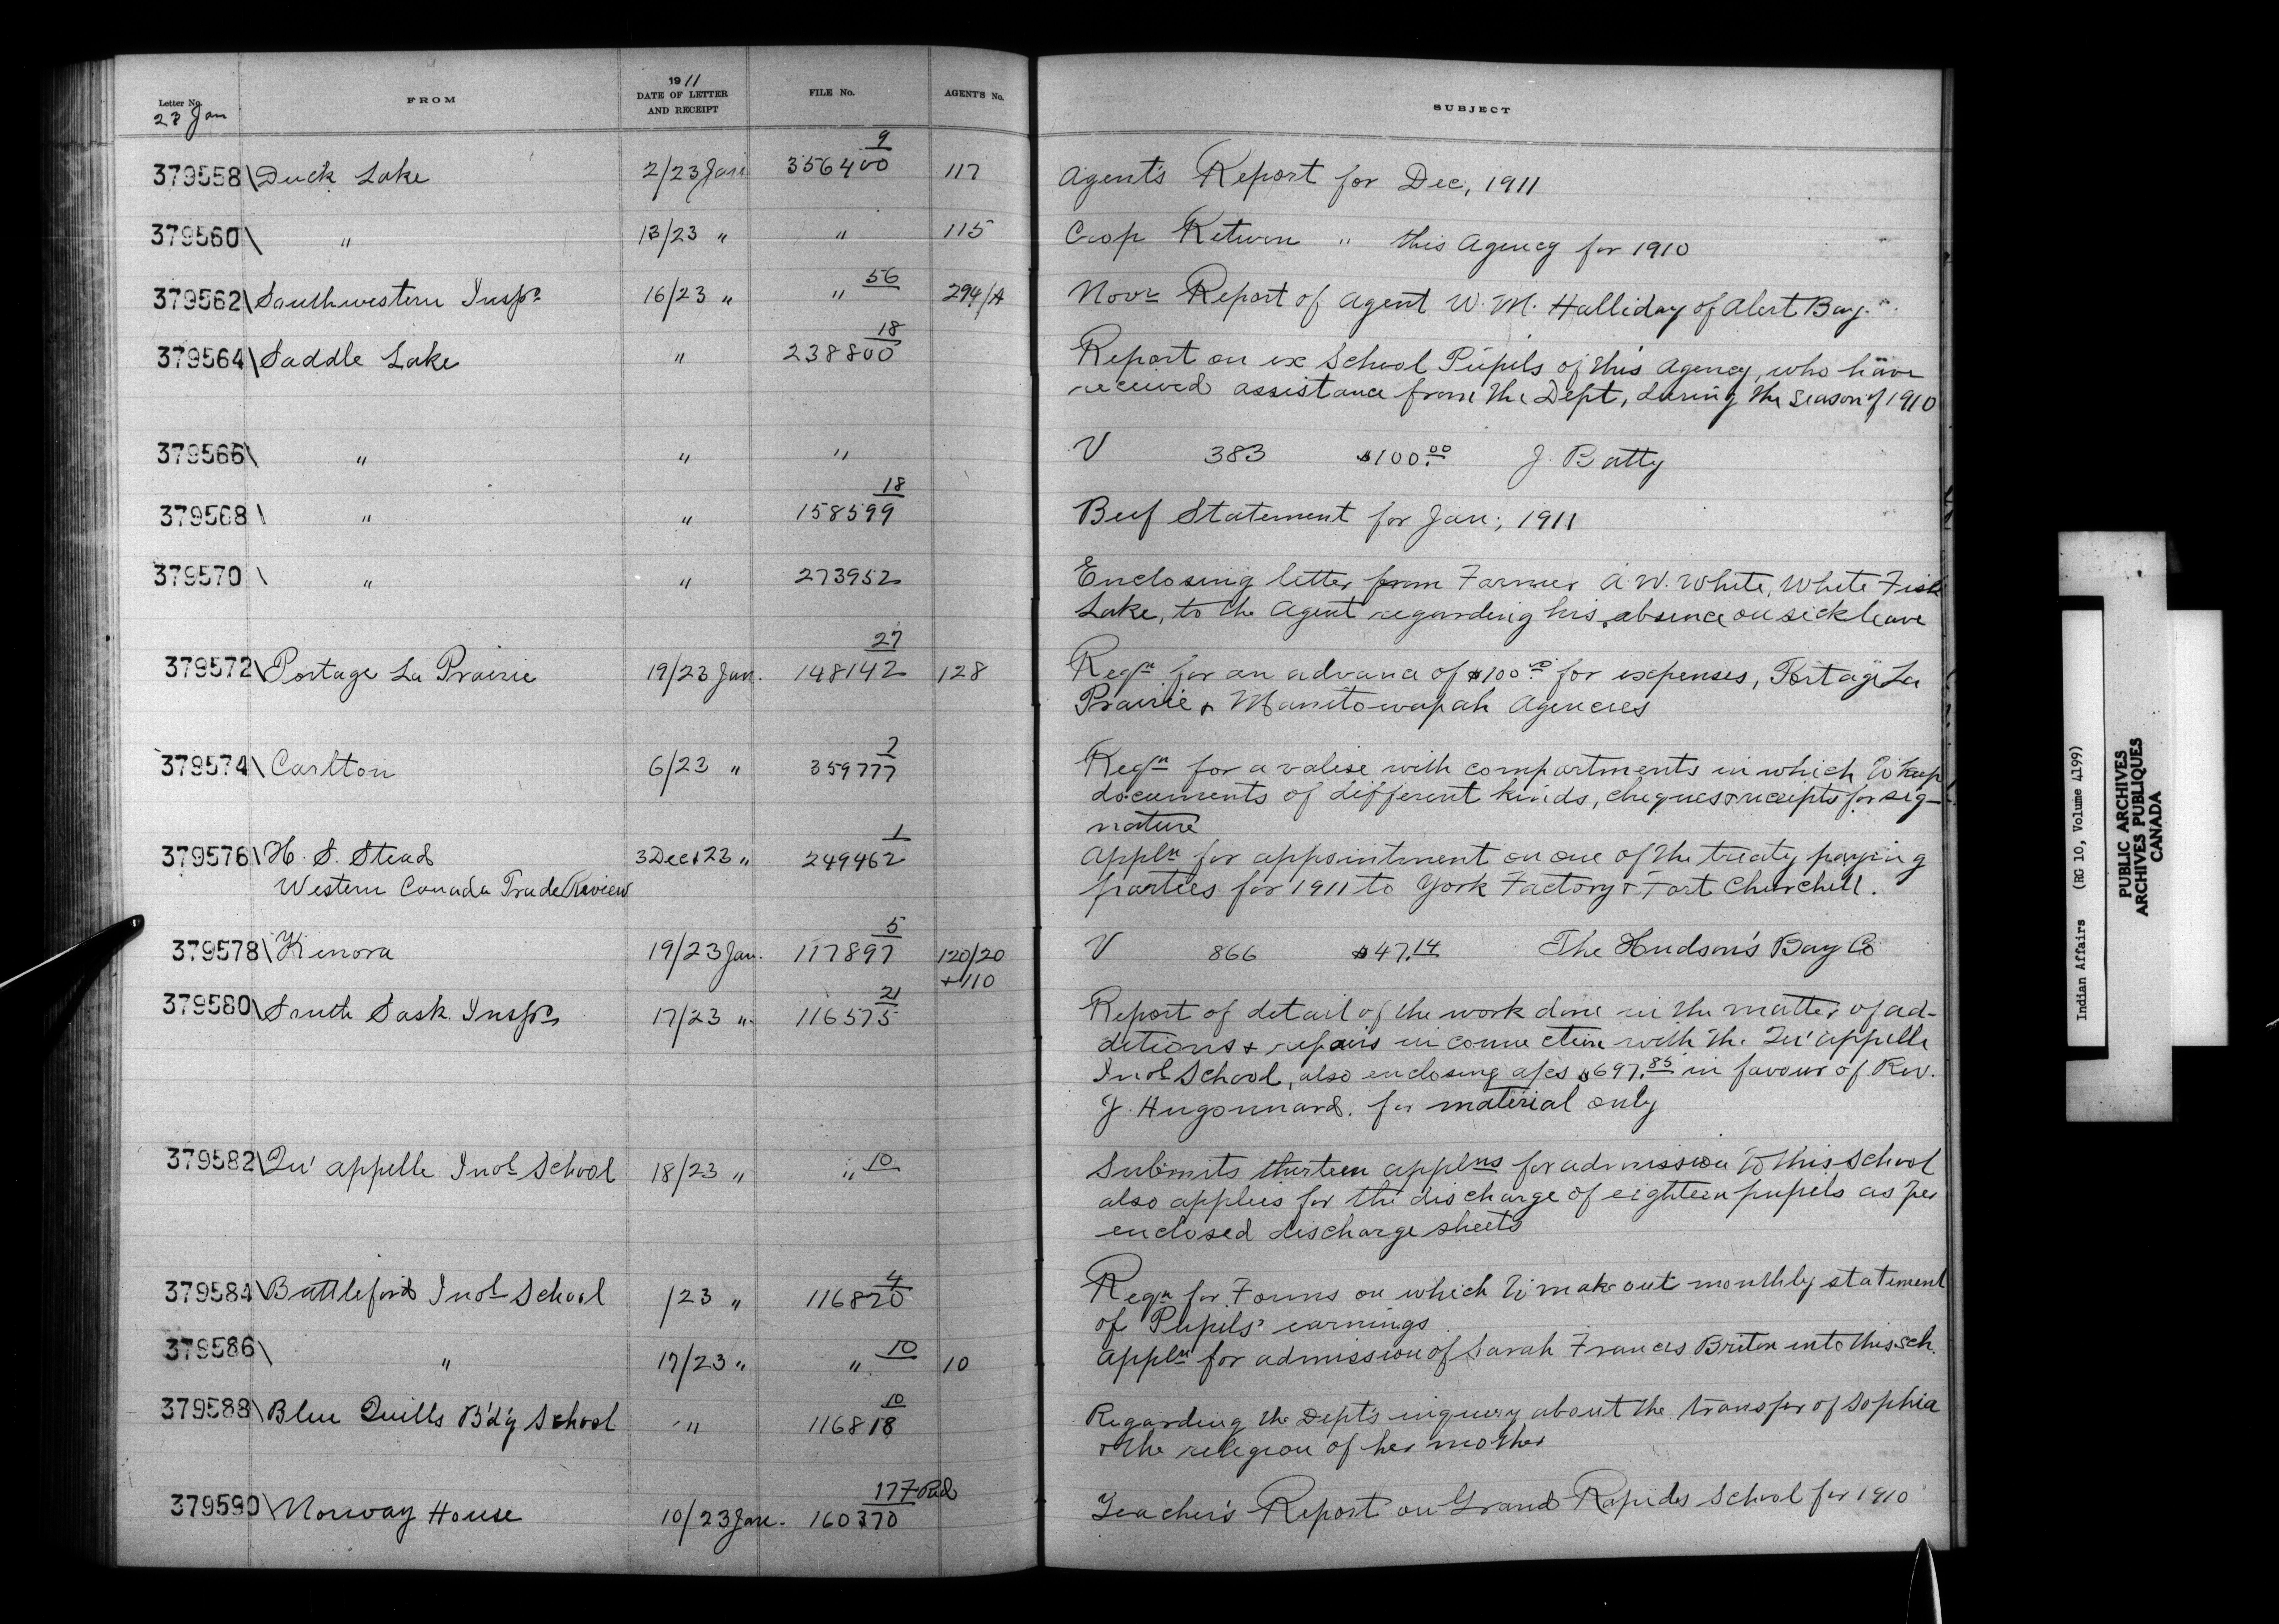 Letter No. FROM 1911 DATE OF LETTER AND RECEIPT FILE No. AGENT'S No. SUBJECT
23 Jan
379558 \ Duck Lake 2/23 Jan 356400 9 117 Agent's Report for Dec, 1911
379560 \ " 13/23 " " 115 Crop Return " this Agency for 1910
379562 \ Southwestern Inspn 16/23 " " 56 294/A Novr Report of Agent W. M. Halliday of Alert Bay.
379564 \ Saddle Lake " 238800 18 Report on ex School Pupils of this Agency, who have
received assistance from the Dept, during the season of 1910
379566 \ " " " V 383 $100.00 J. Batty
379568 \ " " 158599 18 Beef Statement for Jan, 1911
379570 \ " " 273952 Enclosing letter from Farmer A. W. White, White Fish
Lake, to the Agent regarding his absence on sick leave
379572 \ Portage La Prairie 19/23 Jan. 148142 27 128 Reqn for an advance of $100.00 for expenses, Portage La
Prairie & Manitowapah Agencies
379574 \ Carlton 6/23 " 359777 2 Reqn for a valise with compartments in which to keep
documents of different kinds, cheques & receipts for sig-
nature
379576 \ H. S. Stead 3 Dec & 23 " 249462 1 Appln for appointment on one of the treaty paying
Western Canada Trade Review parties for 1911 to York Factory & Fort Churchill.
379578 \ Kenora 19/23 Jan. 117897 5 120/20 V 866 $47.14 The Hudson's Bay Co
+ 110
379580 \ South Sask. Inspn 17/23 " 116575 21 Report of detail of the work done in the matter of ad-
ditions & repairs in connection with the Qu'appelle
Indl School, also enclosing a/cs $697.85 in favour of Rev.
J. Hugonnard. for material only
379582 \ Qu'appelle Indl School 18/23 " " 10 Submits thirteen applns for admission to this School
also applies for the discharge of eighteen pupils as per
enclosed discharge sheets
379584 \ Battleford Indl School /23 " 116820 4 Reqn for Forms on which to make out monthly statement
of Pupils' earnings
379586 \ " 17/23 " " 10 10 Appln for admission of Sarah Frances Briton into this sch.
379588 \ Blue Quills B'd'g School " 116818 10 Regarding the Dept's inquiry about the transfer of Sophia
& the religion of her mother
379590 \ Norway House 10/23 Jan. 160370 177 Teacher's Report on Grand Rapids School for 1910
Indian Affairs (RG 10, Volume 4199)
PUBLIC ARCHIVES
ARCHIVES PUBLIQUES
CANADA